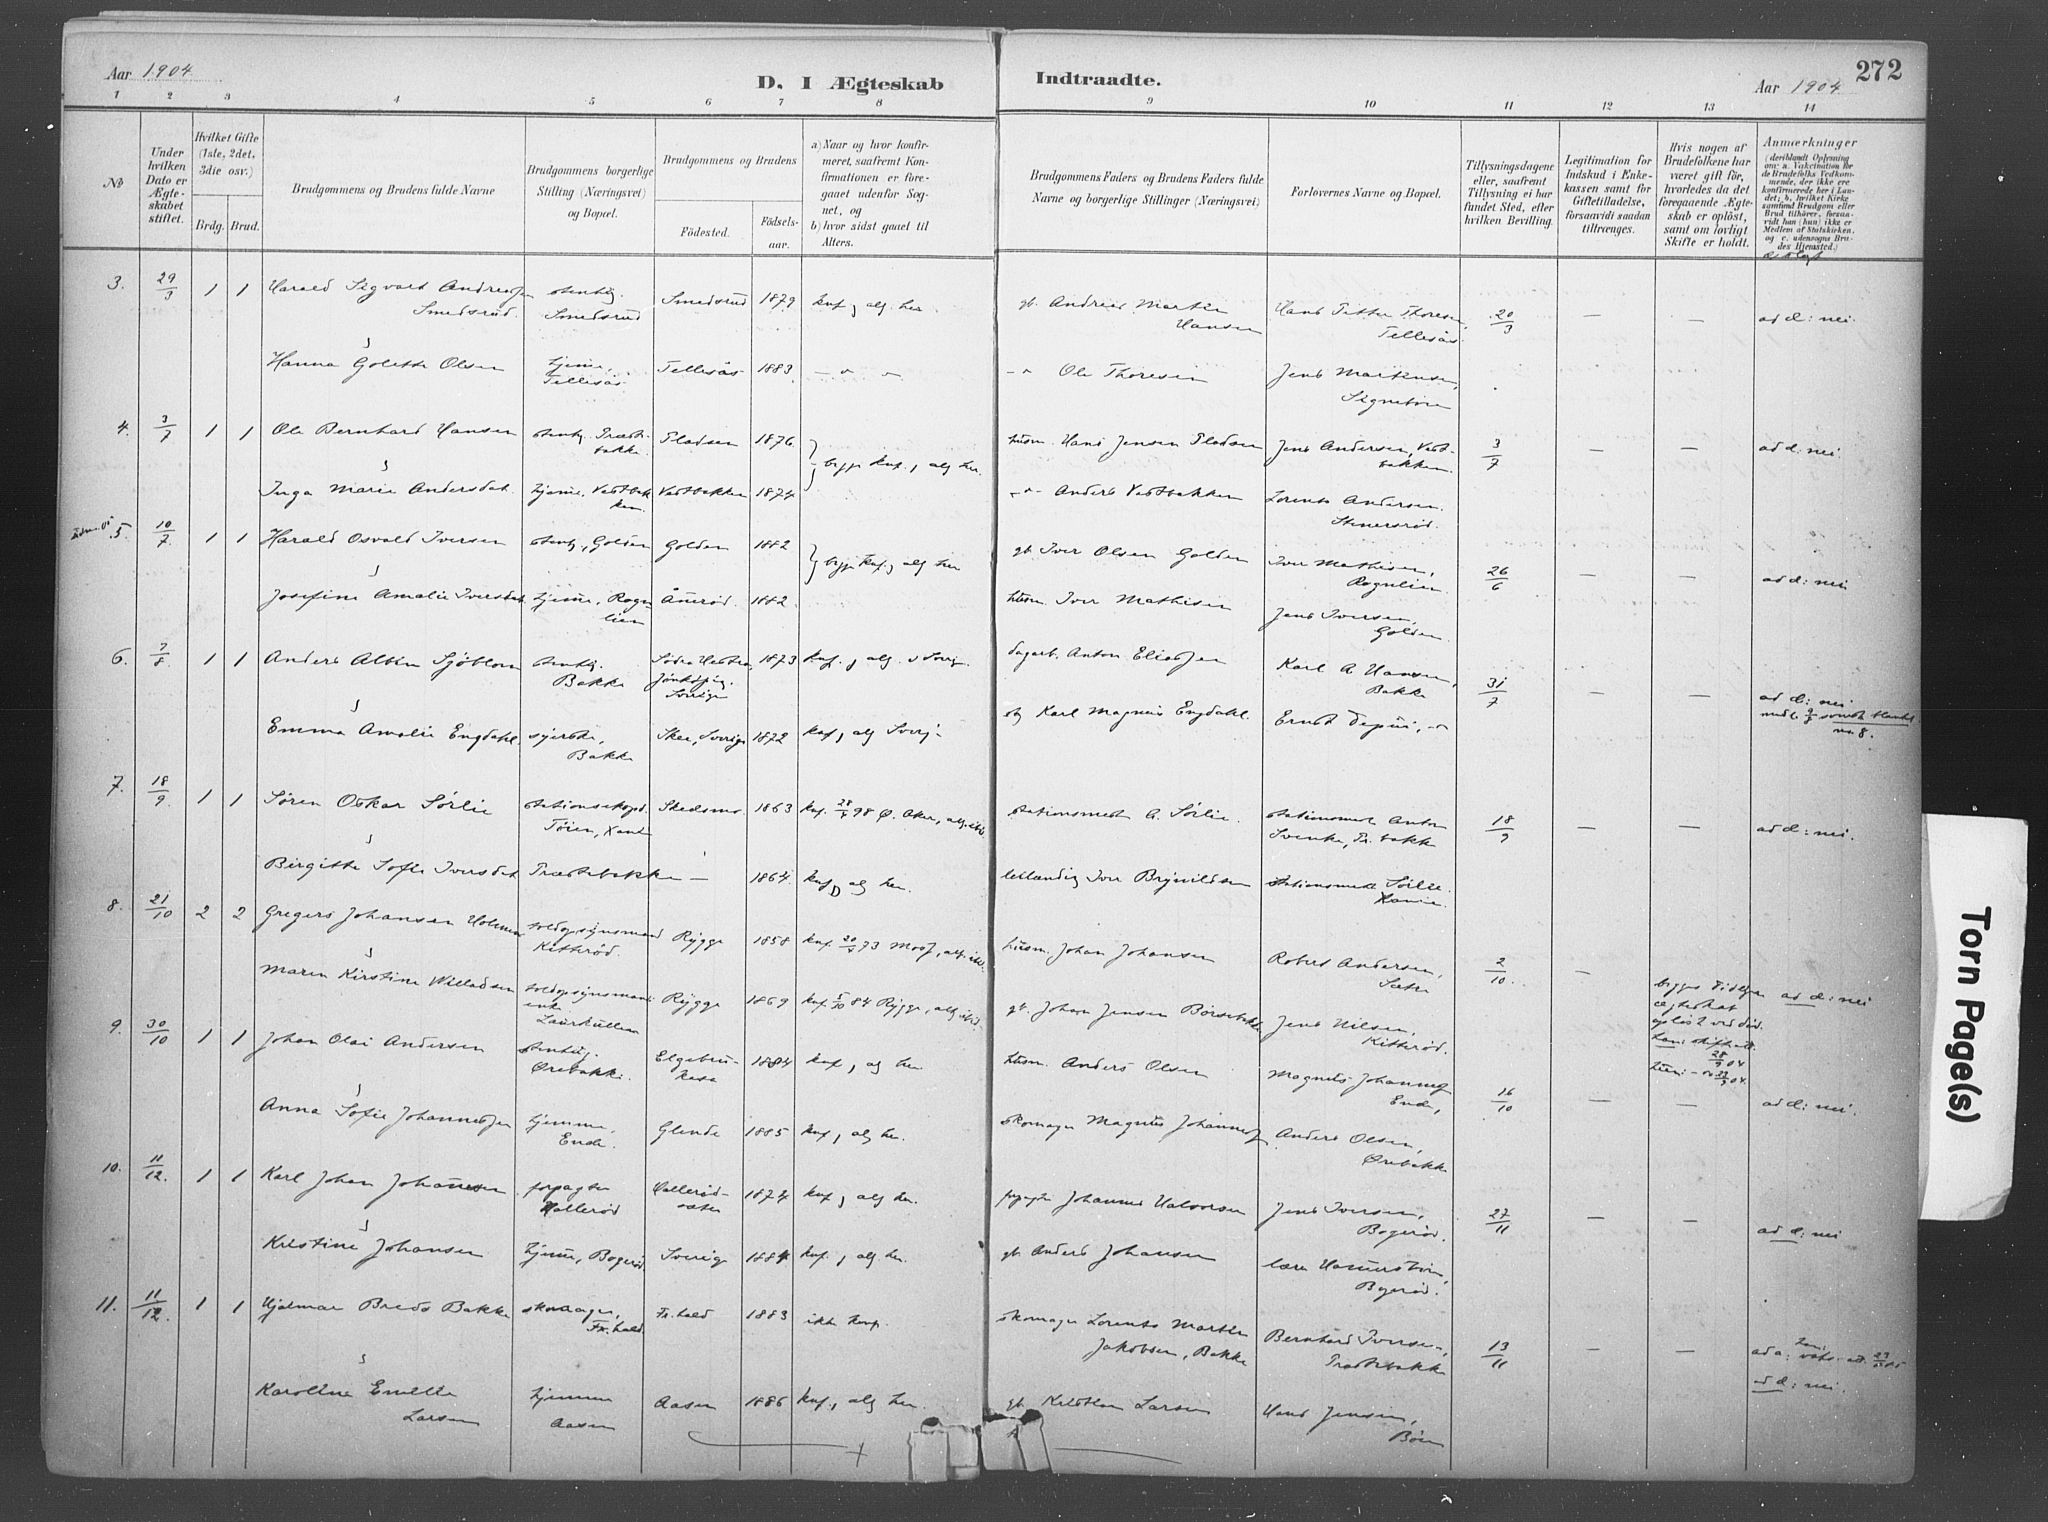 Aar 1904
D. I Ægteskab Indtraadte.
Aar 1904
272
1 2 3 4 5 6 7 8 9 10 11 12 13 14
No
Under hvilken Dato er Ægteskabet stiftet.
Hvilket Gifte (1ste, 2det, 3die osv.)
Brdg. Brud.
Brudgommens og Brudens fulde Navne
Brudgommens borgerlige Stilling (Næringsvei) og Bopæl.
Brudgommens og Brudens
Fødested.
Fødselsaar.
a) Naar og hvor konfirmeret, saafremt Konfirmationen er foregaaet udenfor Sognet, og
b) hvor sidst gaaet til Alters.
Brudgommens Faders og Brudens Faders fulde Navne og borgerlige Stillinger (Næringsvei)
Forlovernes Navne og Bopæl.
Tillysningsdagene eller, saafremt Tillysning ei har fundet Sted, efter hvilken Bevilling.
Legitimation for Indskud i Enkekassen samt for Giftetilladelse, forsaavidt saadan tiltrænges.
Hvis nogen af Brudefolkene har været gift før, hvorledes da det foregaaende Ægteskab er opløst, samt om lovligt Skifte er holdt.
Anmærkninger
(deriblandt Oplysning om: a. Vakcination for de Brudefolks Vedkommende, der ikke ere konfirmerede her i Landet; b. hvilket Kirkesamfund Brudgom eller Brud tilhører, forsaavidt han (hun) ikke er Medlem af Statskirken, og c. udensogns Brudes Hjemsted.)
3. 29/3 1 1 Harald Sigvard Andreasen Smedsrud. stenhg. Smedsrud Smedsrud 1879 knf, alg. her gb. Andreas Martin Hansen Hans Petter Thoresen, Tellesås. 20/3 — — ad d: nei.
Hanna Golette Olsen hjeme, Tellesås. Tellesås 1883 — " " —"— Ole Thoresen Jens Markusen, Signebøen
4. 3/7 1 1 Ole Bernhard Hansen stenhg. Præstebakke Pladsen 1876 begge knf., alg her. husm. Hans Jensen Pladsen Jens Andersen, Vestbakken. 3/7 — — ad d: nei.
Inga Marie Andersdat. hjeme, Vestbakken. Vestbakken 1874 —"— Anders Vestbakken Lorents Andersen. Stenersrød.
5. 10/7 1 1 Harald Osvald Iversen stenhg, Golden Golden 1882 begge knf., alg her gb. Iver Olsen Golden Iver Mathisen, Rognlien. 26/6 — — ad d: nei
Josefine Amalie Iversdat. hjeme, Rognlien Ånerød. 1882. husm. Iver Mathisen Jens Iversen, Golden.
6. 7/8 1 1 Anders Albin Sjöblom stenhg. Bakke Södra Hestra, Jönköping. Sverige 1873 knf., alg. i Sverig. dagarb. Anton Eliassen Karl A Hansen, Bakke 31/7 — — ad d: nei
Emma Amalie Engdahl. syerske, Bakke Skee, Sverige 1872 knf, alg Sverj. Karl Magnus Engdahl. Ernst Depui, —"—
7. 18/9. 1 1 Søren Oskar Sørlie stationsexped. Tøien, Skedsmo 1863 knf. 28/4 98 Ø. Aker, alg. ibd. stationsmest A. Sørlie. stationsmest Anton Svenke, Pr. bakke 18/9 — — ad d: nei.
Birgitte Sofie Iversdat Præstebakke — 1864. knf, alg her. Iver Brynildsen stationsmest Sørlie.
8. 21/10 2 2 Gregers Johansen Holmen toldopsynsmand Kitterød. Rygge 1858 knf. 20/4 73 Moss, alg. ibd. husm. Johan Johansen Robert Andersen, Sæter 2/10. — ad d: nei
Maren Kirstine Willadsen toldopsynsmand enke Laurkullen Rygge 1869 knf. 5/10 84 Rygge, alg. ibd. gb. Johan Jensen Børsebakke Jens Nilsen, Kitterød. begges tidligere ægteskab opløst ved død. ham: skifteatt. 28/9 04 hun: —"— 04.
9. 30/10 1 1 Johan Olai Andersen stenhug. Ørebakke. 1884 knf, alg her. husm. Anders Olsen Magnus Johannes Ende, 16/10 — — ad d: nei.
Anna Sofie Johannessen hjemme, Ende. Glende 1885 knf, alg her. skomager Magnus Johannes Anders Olsen, Ørebakke
10. 11/12. 1 1 Karl Johan Johannesen forpagter Hallerød 1874 knf, alg her. forpagter Johannes Halvorsen Jens Iversen, Bogerød. 27/11 — — ad d: nei
Kristine Johansen hjeme, Bogerød. Sverige 1884 knf., alg her. gb. Anders Johansen Bogerød.
11. 11/12. 1 1 Hjalmar Bredo Bakke skomager, Fr. hald. Fr. hald 1883 ikke konf. skomager Lorents Martin Jakobsen, Bakke Bernhard Iversen, Præstebakke 13/11 — —
Karoline Emelie Larsen hjemme Aasen Aasen 1886 knf., alg her. gb. Kristian Larsen Hans Jensen, Bøen ad d: nei.
Torn Page(s)